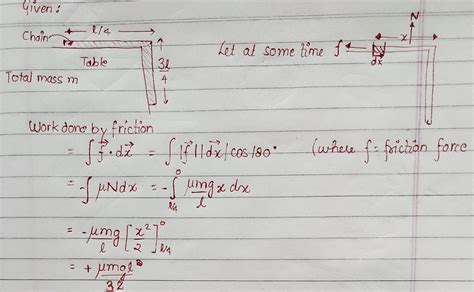 Given:
l/4
Chain
Table
3l/4
Total mass m
Let at some time f
N
x
dx
Work done by friction
= ∫ f⃗ · dx⃗ = ∫ |f⃗| |dx⃗| cos 180° (where f = friction force
= -∫ μNdx = -∫_{l/4}^{0} μmg/l x dx
= -μmg/l [x²/2]_{l/4}^{0}
= + μmgl/32